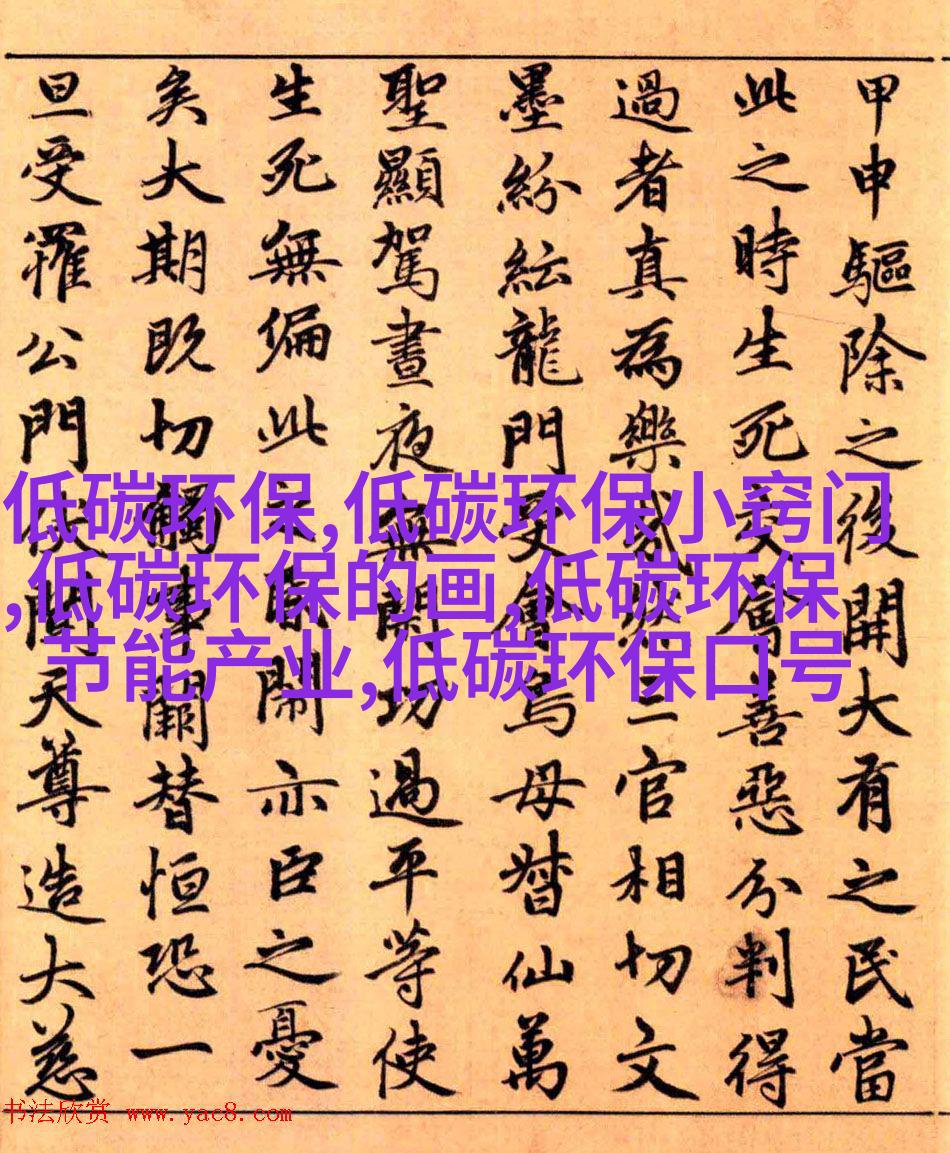 甲申驅除之後開大有之民當
此之時生死交善惡分判得
過者真為樂哉三官相切文
墨紛紜龍門受會鳥母督仙萬
聖顯駕晝夜無閑功過平等使
生死無偏此亦臣之憂
矣大期既切觸事闕替恒恐一
旦受罹公門伏聞天尊造大慈
低碳环保,低碳环保小窍门
,低碳环保的画,低碳环保
节能产业,低碳环保口号
书法欣赏 www.yac8.com